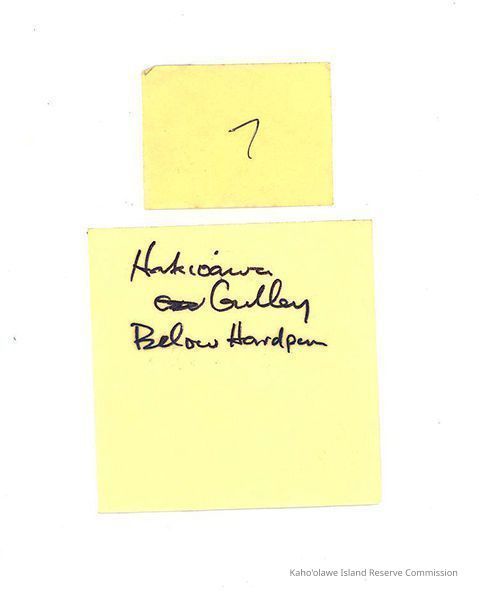 7
Hakioawa
Gulley
Below Hardpan
Kaho'olawe Island Reserve Commission